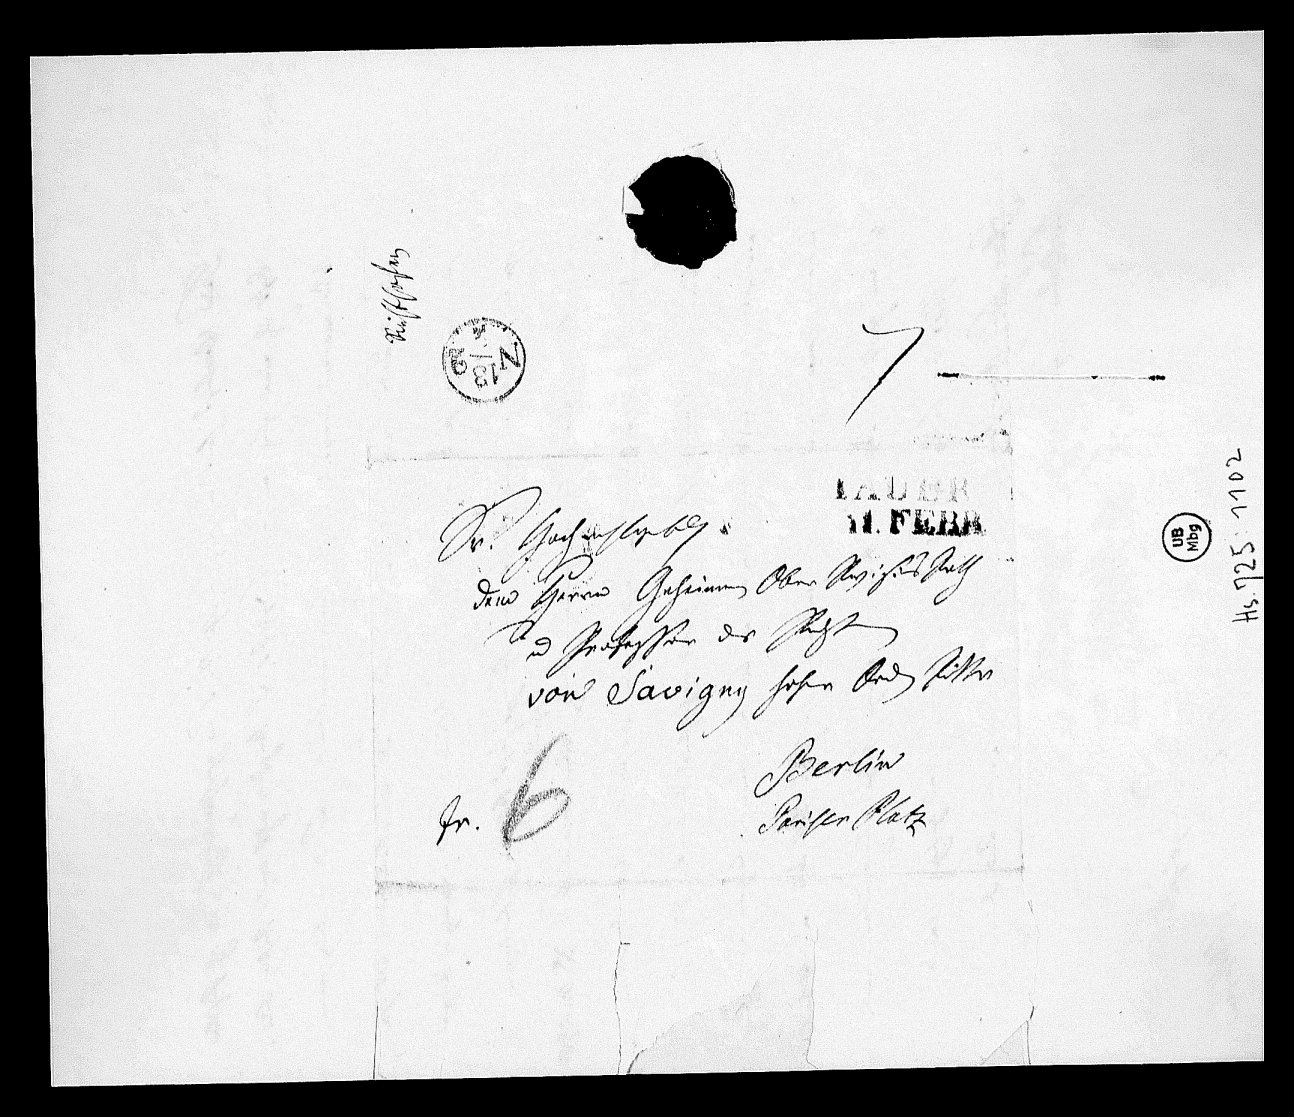 Richthofen
N 13/2
7
JAUER
11. FEBR
Sr. Hochwohlgeb.
dem Herrn Geheimen Ober Revisions Rath
und Professor der Rechte
von Savigny hoher Orden Ritter
Berlin
Pariser Platz
fr. 6
UB Mbg
Hs. 725: 1102